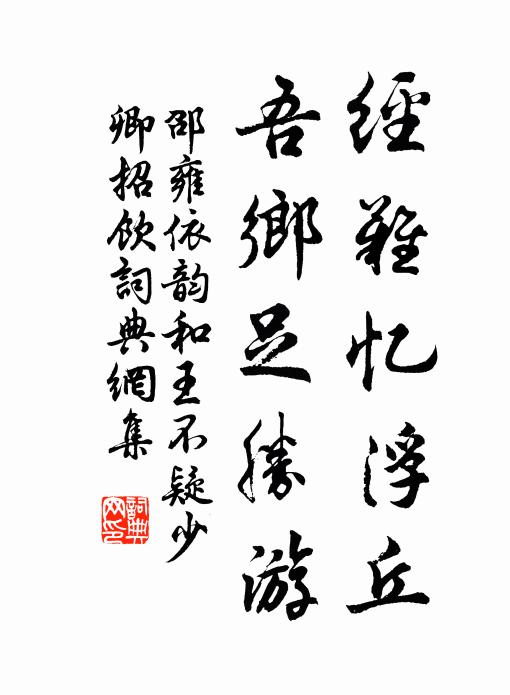 經難忆浮丘
吾鄉足勝游
邵雍依韵和王不疑少
卿招飲詞典網集
詞典網印